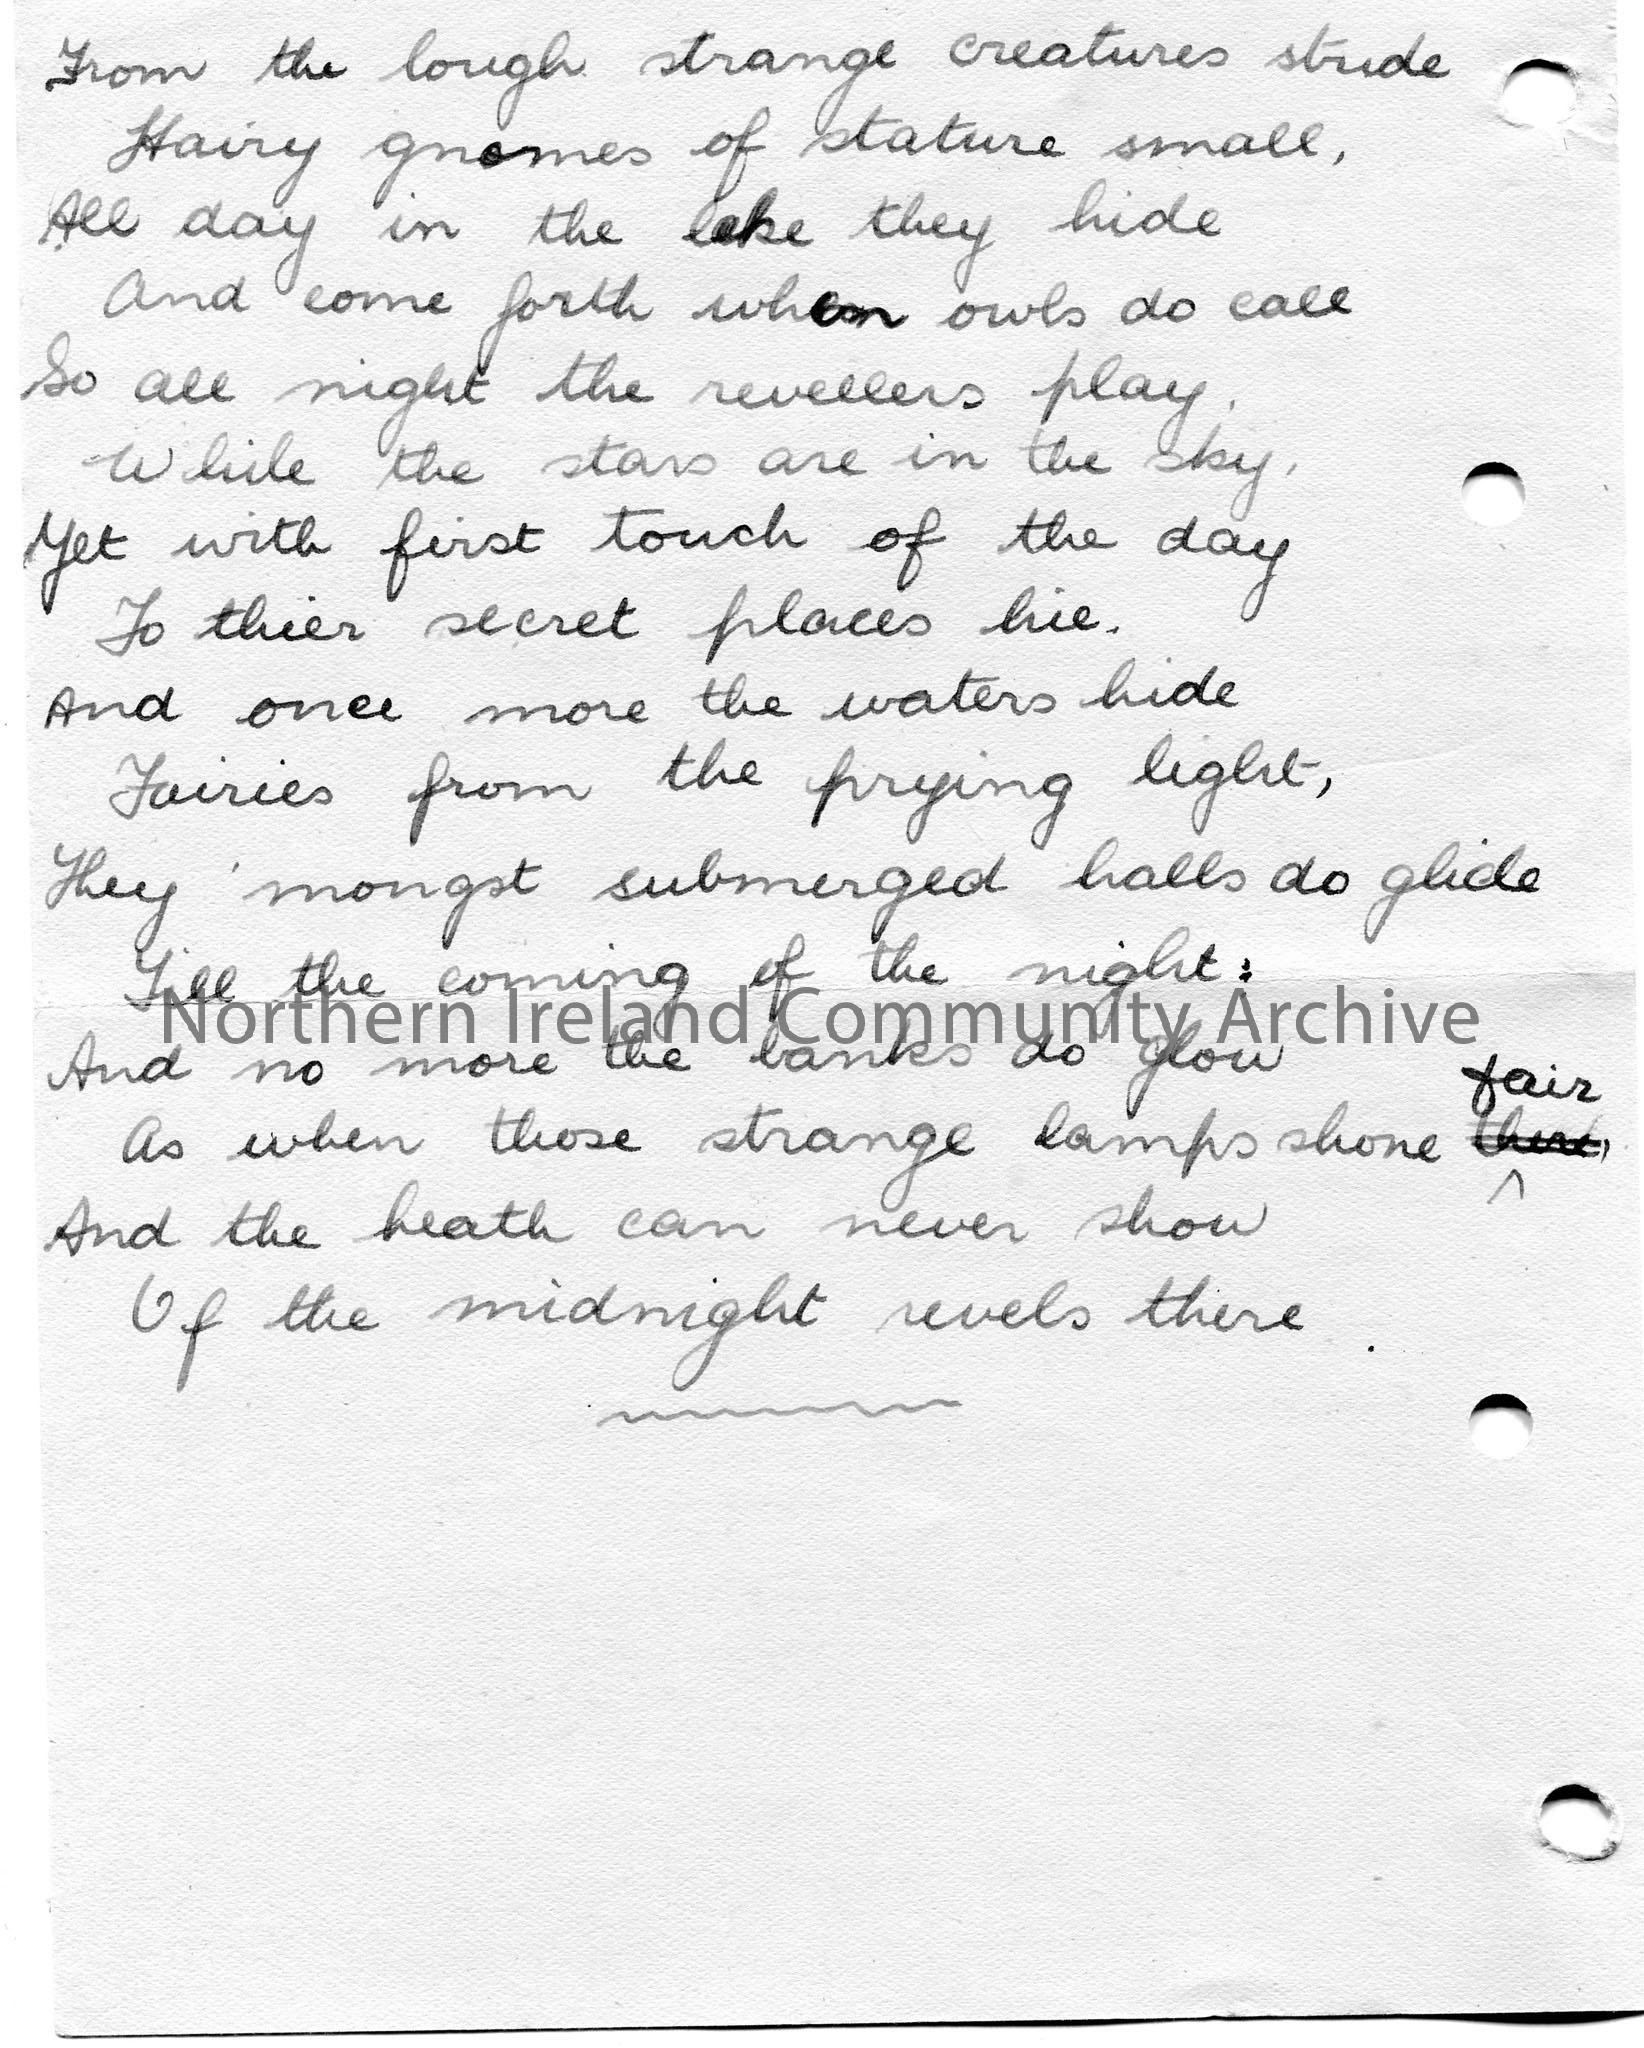 From the lough strange creatures stride
Hairy gnomes of stature small,
All day in the lake they hide
And come forth when owls do call
So all night the revellers play,
While the stars are in the sky,
Yet with first touch of the day
To thier secret places hie.
And once more the waters hide
Fairies from the prying light,
They 'mongst submerged halls do glide
Till the coming of the night:
Northern Ireland Community Archive
And no more the banks do glow
fair
As when those strange lamps shone there,
And the heath can never show
Of the midnight revels there.